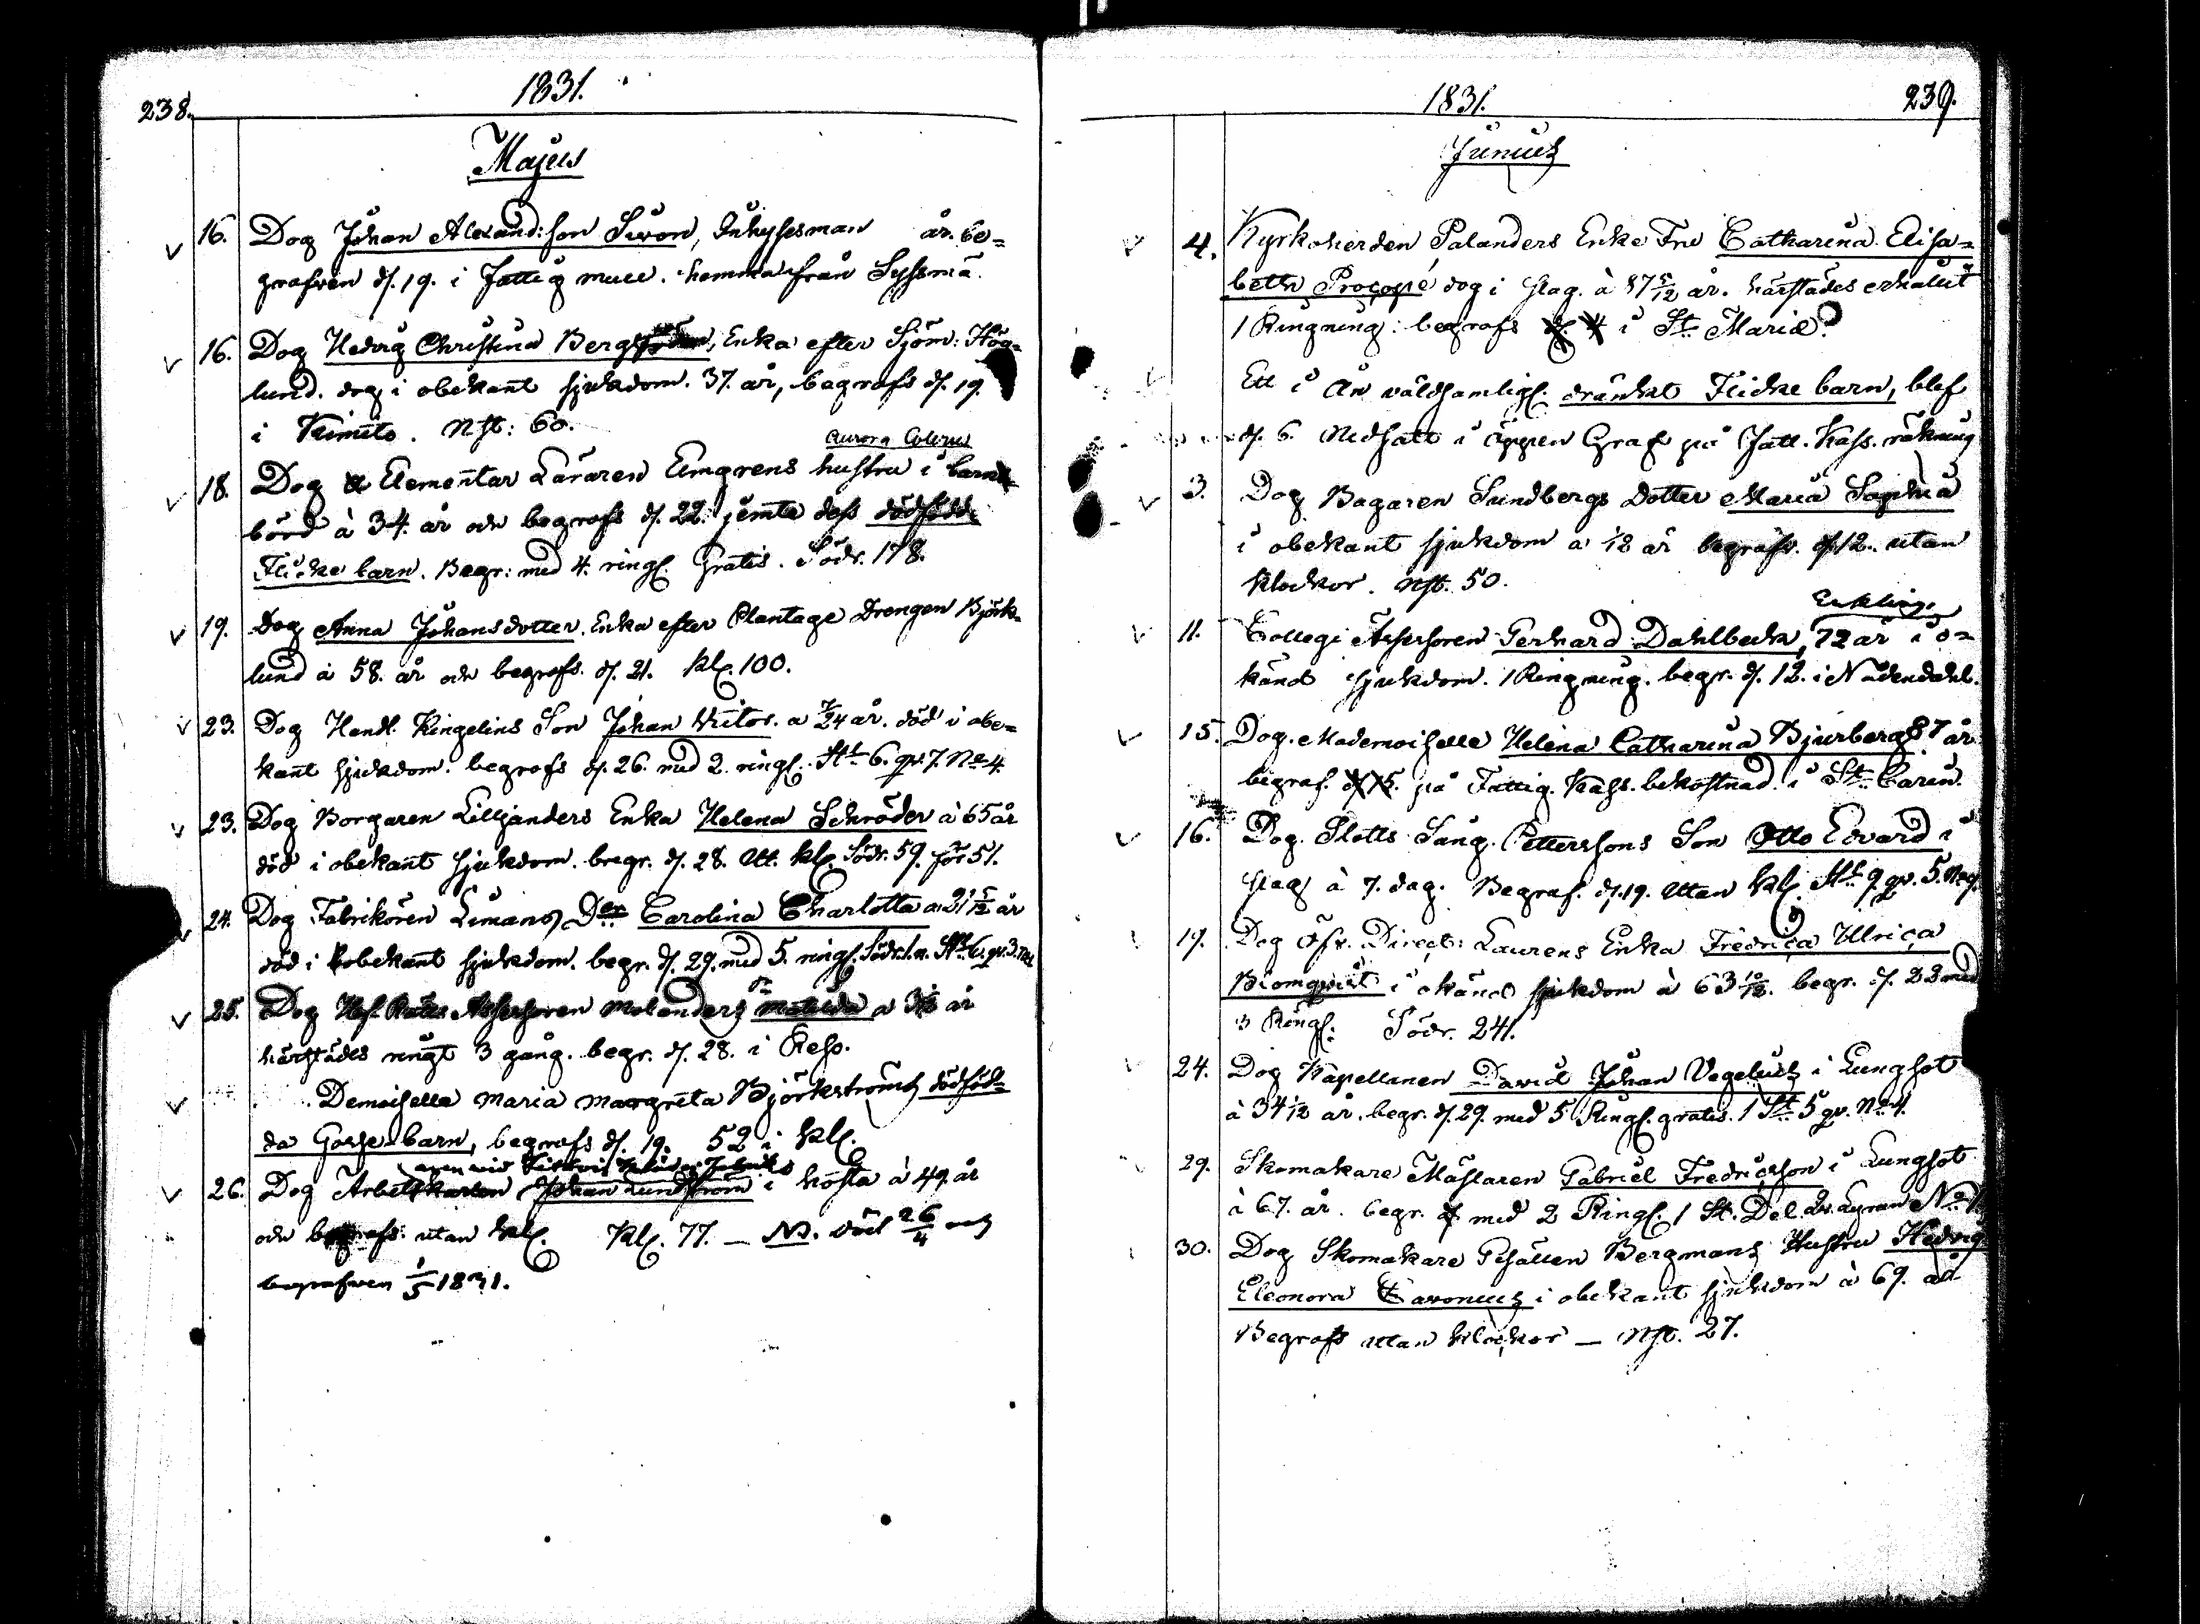 238.
1831.
Majus
16. Dog Johan Alexand:son Siwon, Inhysesman år. be=
grafven d. 19. i Fattig mull. hemma från Syssmä.
16. Dog Hedvig Christina Berg, Enka efter Sjöm: Hög=
lund. dog i obekant sjukdom. 37. år, begrofs d. 19.
i Kimito. Nst: 60.
Aurora
18. Dog Elementar Läraren Elmgrens hustru i barns
börd à 34. år och begrofs d. 22. jemte dess dödfödde
Flicke barn. Begr: med 4. ringn. Gratis. Södr. 178.
19. Dog Anna Johansdotter. Enka efter Plantage Drengen Björk=
lund à 58. år och begrofs. d. 21. Kl. 100.
23. Dog Handl. Ringelins Son Johan Vitor. a 7/24 år. död i obe=
kant sjukdom. begrofs d. 26. med 2. ringn. St. 6. qv. 7. No 4.
23. Dog Borgaren Lilljanders Enka Helena Schröder à 65 år
död i obekant sjukdom. begr. d. 28. Utt. kl. Södr. 59. för 51.
24. Dog Fabrikören Limans Dr Carolina Charlotta a 21 5/12 år
död i obekant sjukdom. begr. d. 29. med 5. ringn. Södr. St. 6. qv. 3.
25. Dog Hof Rätts Assessoren Molanders Dr Matilda a år
härstädes ringt 3 gång. begr. d. 28. i Reso.
Demoiselle Maria Margreta Björkströms dödföd=
da Gosse-barn, begrofs d. 19. 52 i kl.
26. Dog Arbetskarlen Johan Lundström i hosta à 49. år
och begrofs: utan kl. Kl. 77. — NB. död 26/4 och
begrafven 1/5 1831.
1831.
239.
Junius
4. Kyrkoherden Palanders Enke Fru Catharina Elisa=
beth Procopé dog i slag. à 87 5/12 år. härstädes erhållit
1 Ringning: begrofs i St. Mariæ.
Ett i Ån våldsamlign. dränkt Flicke barn, blef
d. 6. Nedsatt i öppen Graf på Fatt. Kass. räkning
3. Dog Bagaren Sundbergs Dotter Maria Sophia
i obekant sjukdom a 1/12 år begrofs. d. 12. utan
Klockor. Nst. 50.
Enkling
11. Collegi Assessoren Gerhard Dahlbeck, 72 år i o=
känd sjukdom. 1 Ringning. begr. d. 12. i Nådendahl.
15. Dog. Mademoiselle Helena Catharina Bjurberg 87 år
begraf. på Fattig. Kass. bekostnad. i St. Carin.
16. Dog. Slotts Fång. Petterssons Son Otto Edvard i
slag à 7. dag. Begraf. d. 19. utan kl. St. 9 qv. 5. No 9.
19. Dog Öfv. Direct: Laurens Enka Fredrica Ulrica
Blomqvist i okänd sjukdom à 63 10/12. begr. d. 23 med
3 Ringn: Södr. 241.
24. Dog Kapellanen David Johan Vegelius i Lungsot
à 34 1/12 år. begr. d. 29. med 5 Ringn. gratis. 1 St. 5 qv. No 4.
29. Skomakare Mästaren Gabriel Fredricsson i Lungsot
à 67. år. begr. d. med 2 Ringn. 1 St. Del. No 1.
30. Dog Skomakare Gesällen Bergmans Hustru Hedvig
Eleonora Cavonius i obekant sjukdom à 69. år
Begrofs utan klockor — Nst. 27.